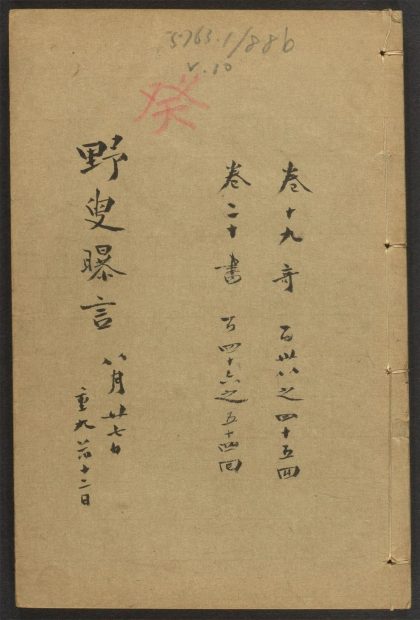 5763.1/886
v.10
癸
卷十九 奇 百卅八之四十五回
卷二十 書 百四十六之五十四回
野叟曝言
八月廿七日
重九前十二日